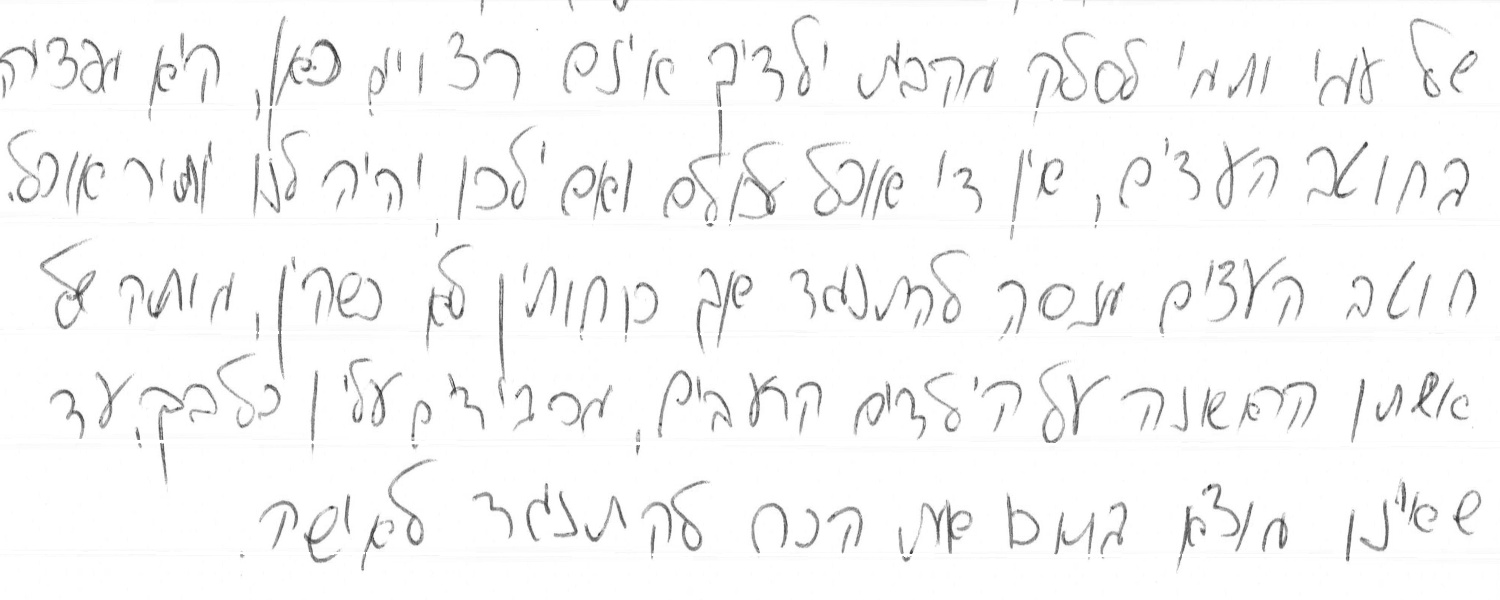 של עמי ותמי לסלק מקרבת ילדיך אינם רצויים כאן, היא מפצירה
בחוטב העצים, אין די אוכל עבור כולם ואם ילכו, יהיה לנו יותר אוכל.
חוטב העצים מנסה להתנגד אך כוחותיו לא כשהיו, מותה של
אשתו הראשונה על הילדים הרעבים, מכבידים עליו כל כך, עד
שאינו מוצא בנפשו את הכח להתנגד לאישה.